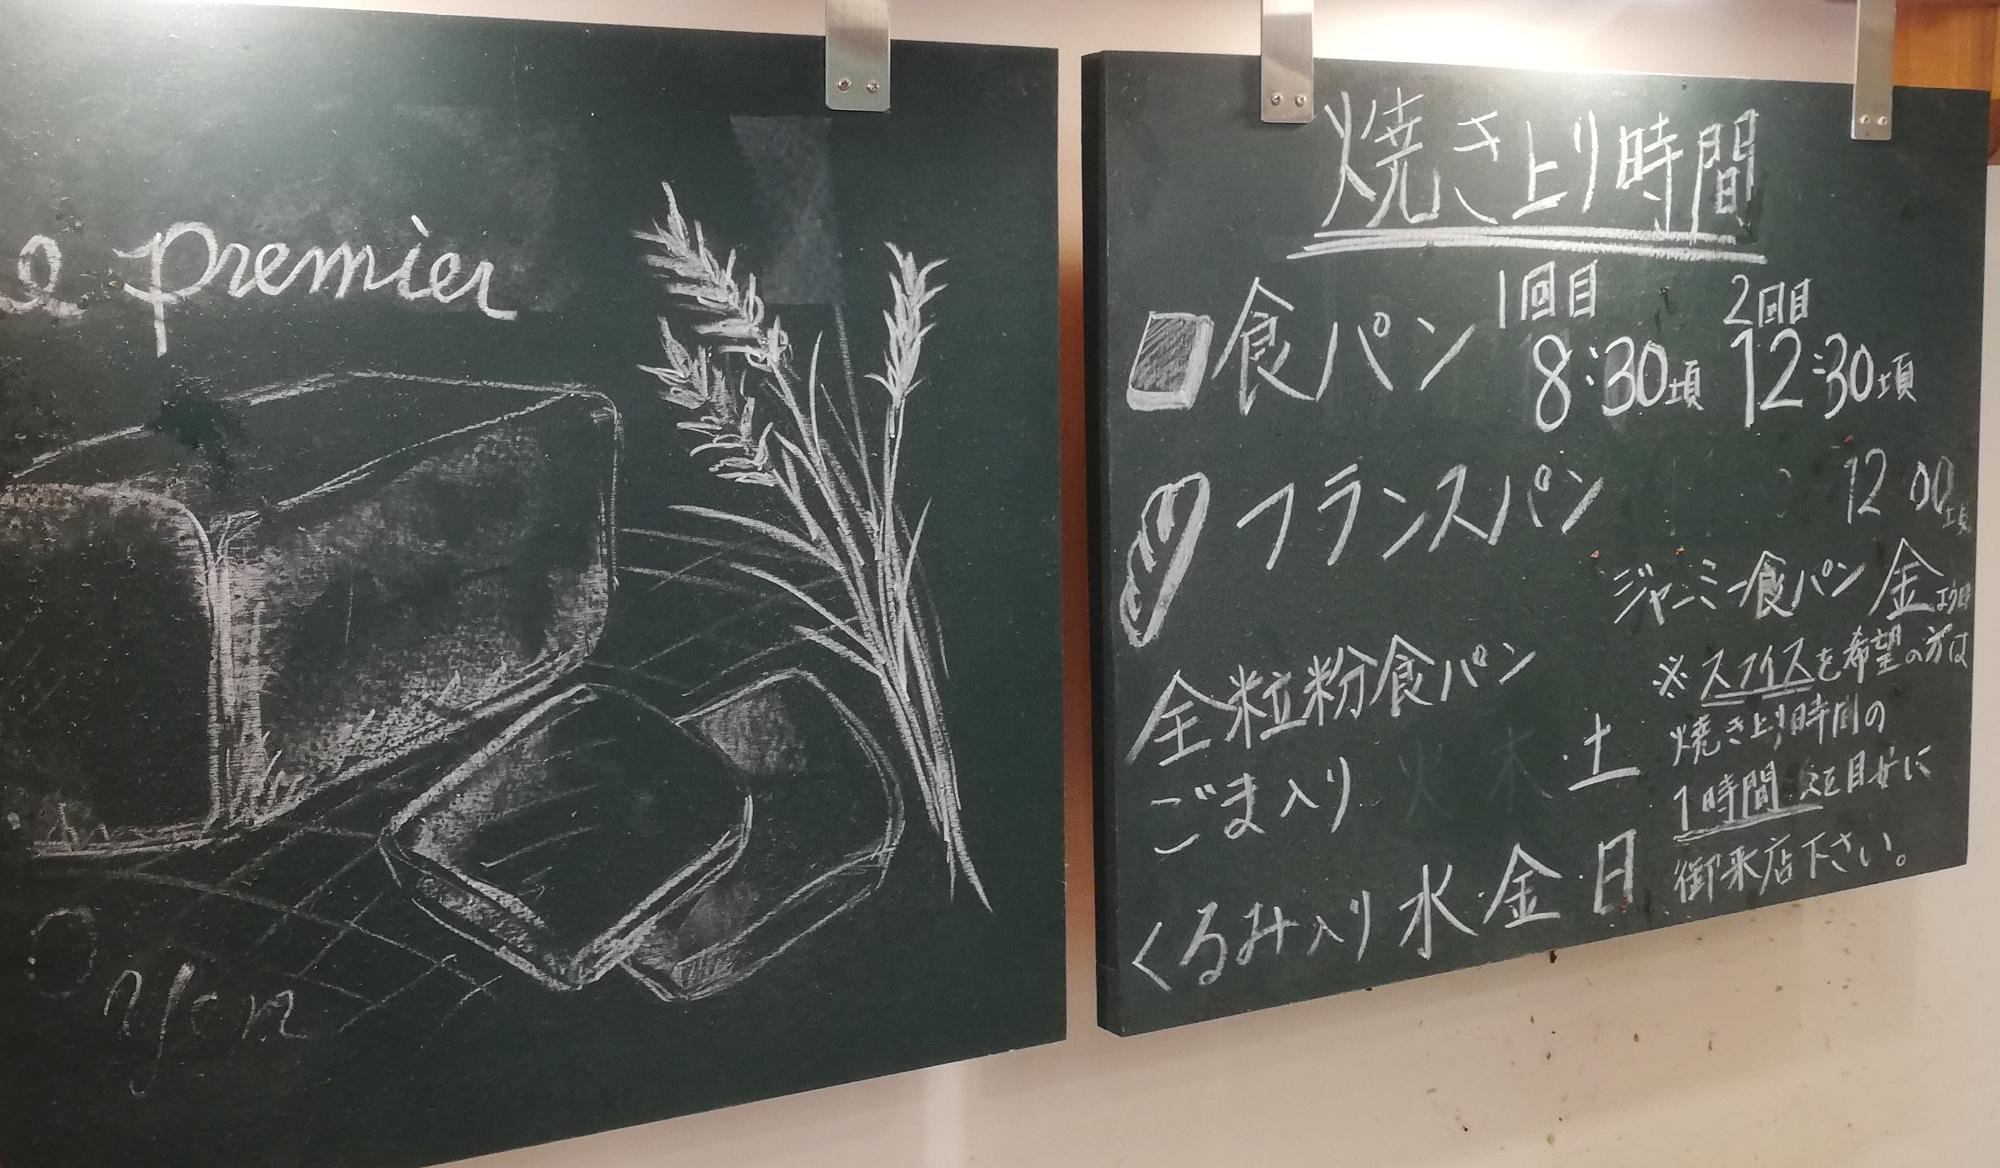 e premier
yen
焼き上り時間
1回目 2回目
食パン 8:30頃 12:30頃
フランスパン 12 00頃
ジャーミー食パン 金曜日
全粒粉食パン
※スライスを希望の方は
焼き上り時間の
ごま入り 火 木・土
1時間 後を目安に
御来店下さい。
くるみ入り 水・金・日